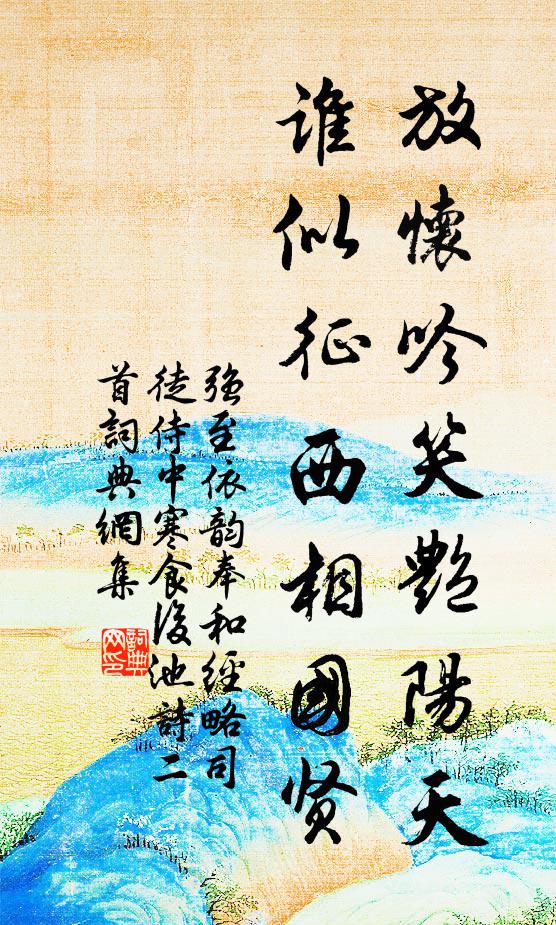 放懷吟笑艷陽天
誰似征西相國贤
強至依韵奉和經略司
徒侍中寒食後池詩二
首詞典網集
詞典
网印